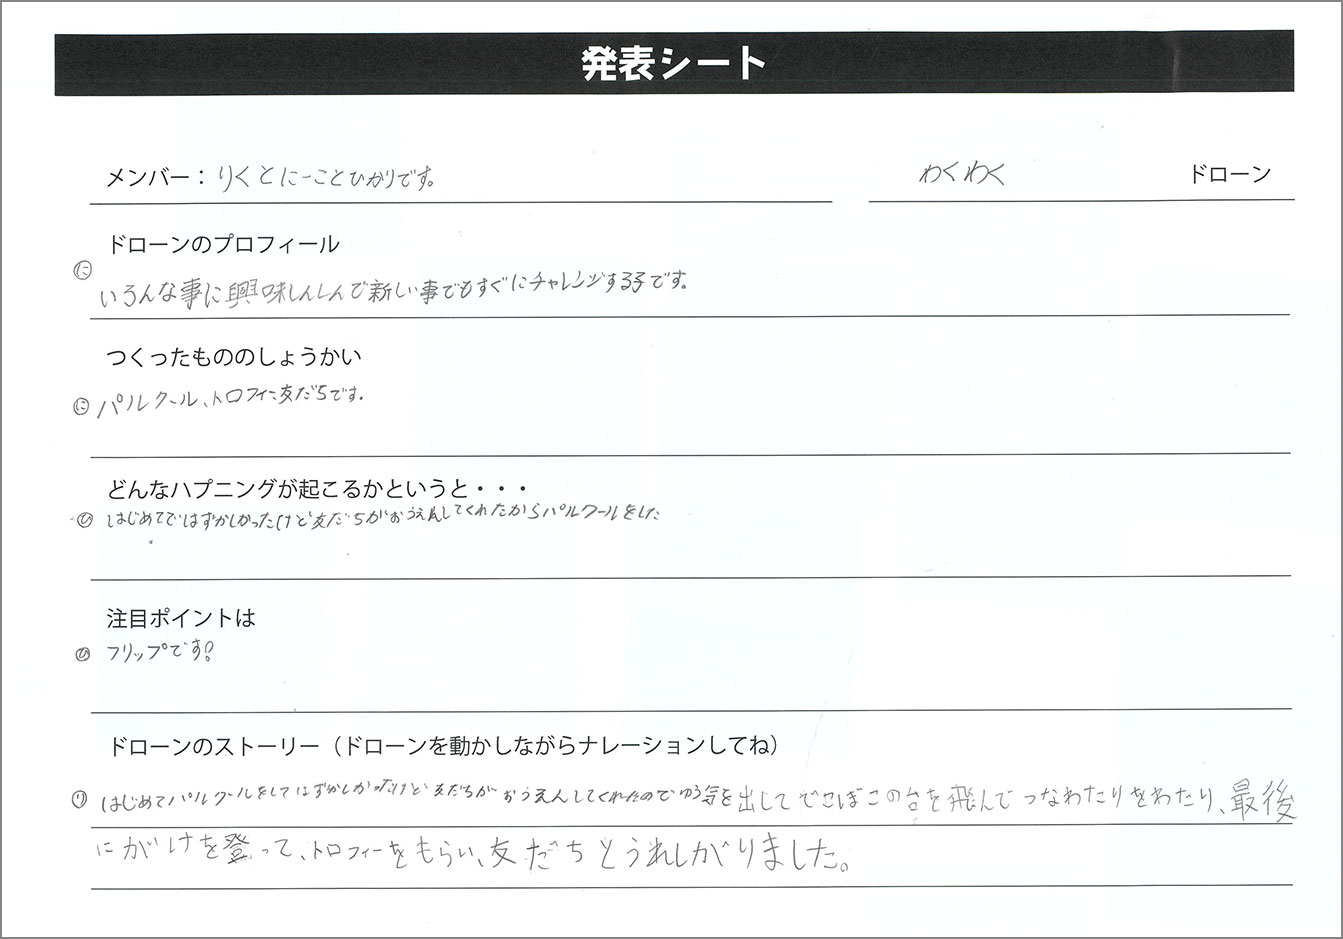 発表シート
メンバー：りくとにーことひかりです。
わくわく ドローン
ドローンのプロフィール
に いろんな事に興味しんしんで新しい事でもすぐにチャレンジする子です。
つくったもののしょうかい
に パルクール、トロフィー友だちです。
どんなハプニングが起こるかというと・・・
ひ はじめてではずかしかったけど友だちがおうえんしてくれたからパルクールをした
注目ポイントは
ひ フリップです!
ドローンのストーリー（ドローンを動かしながらナレーションしてね）
り はじめてパルクールをしてはずかしかったけど友だちがおうえんしてくれたのでゆう気を出してでこぼこの台を飛んでつなわたりをわたり、最後
にがけを登って、トロフィーをもらい、友だちとうれしがりました。